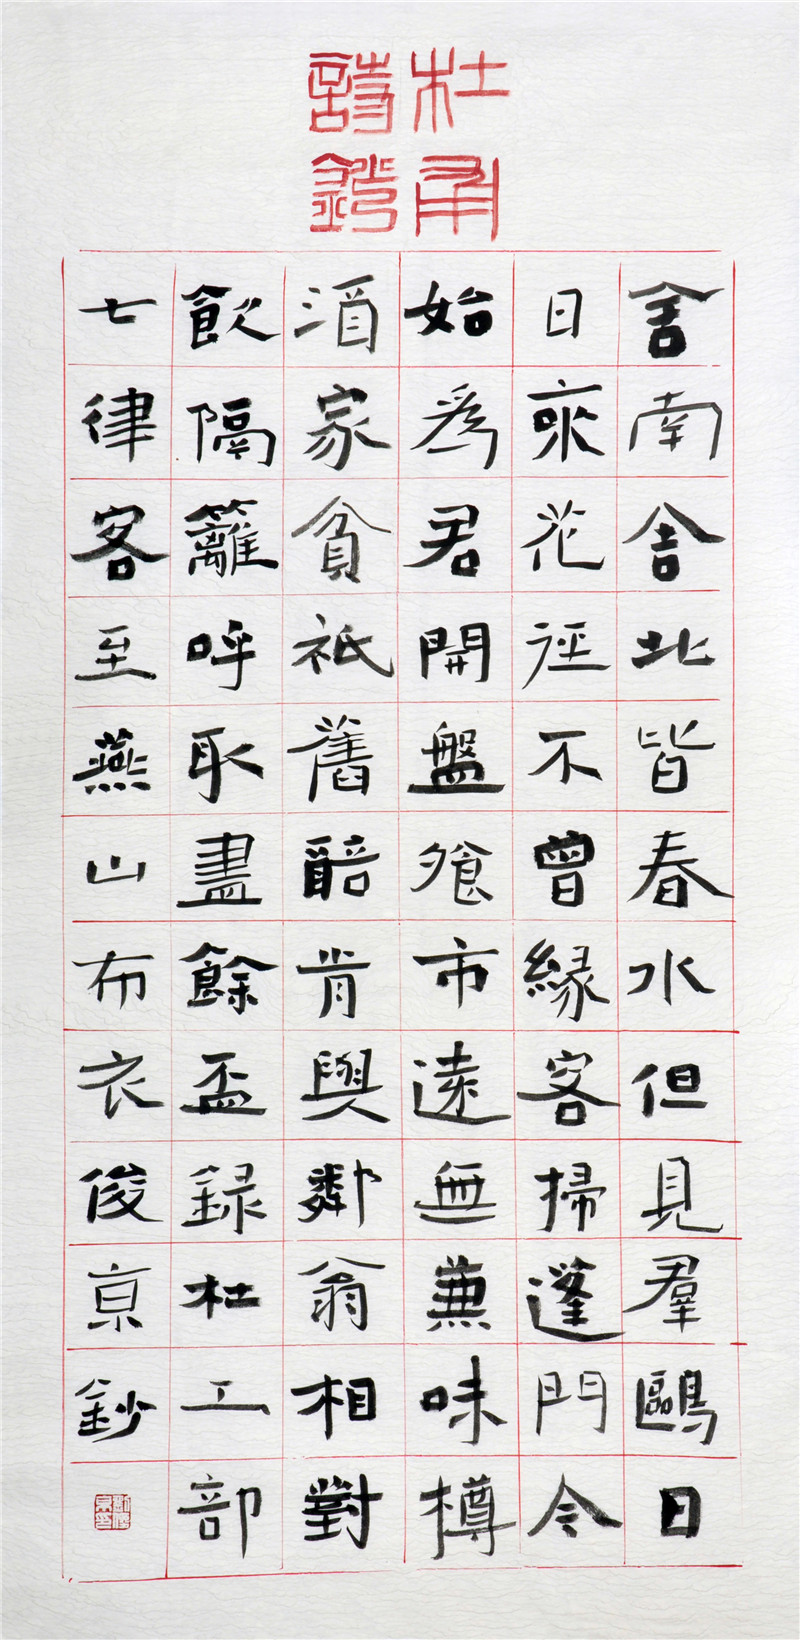 杜甫
詩鈔
舍南舍北皆春水但見羣鷗日
日來花徑不曾緣客掃蓬門今
始爲君開盤飧市遠無兼味樽
酒家貧祗舊醅肯與鄰翁相對
飲隔籬呼取盡餘盃録杜工部
七律客至燕山布衣俊亰鈔